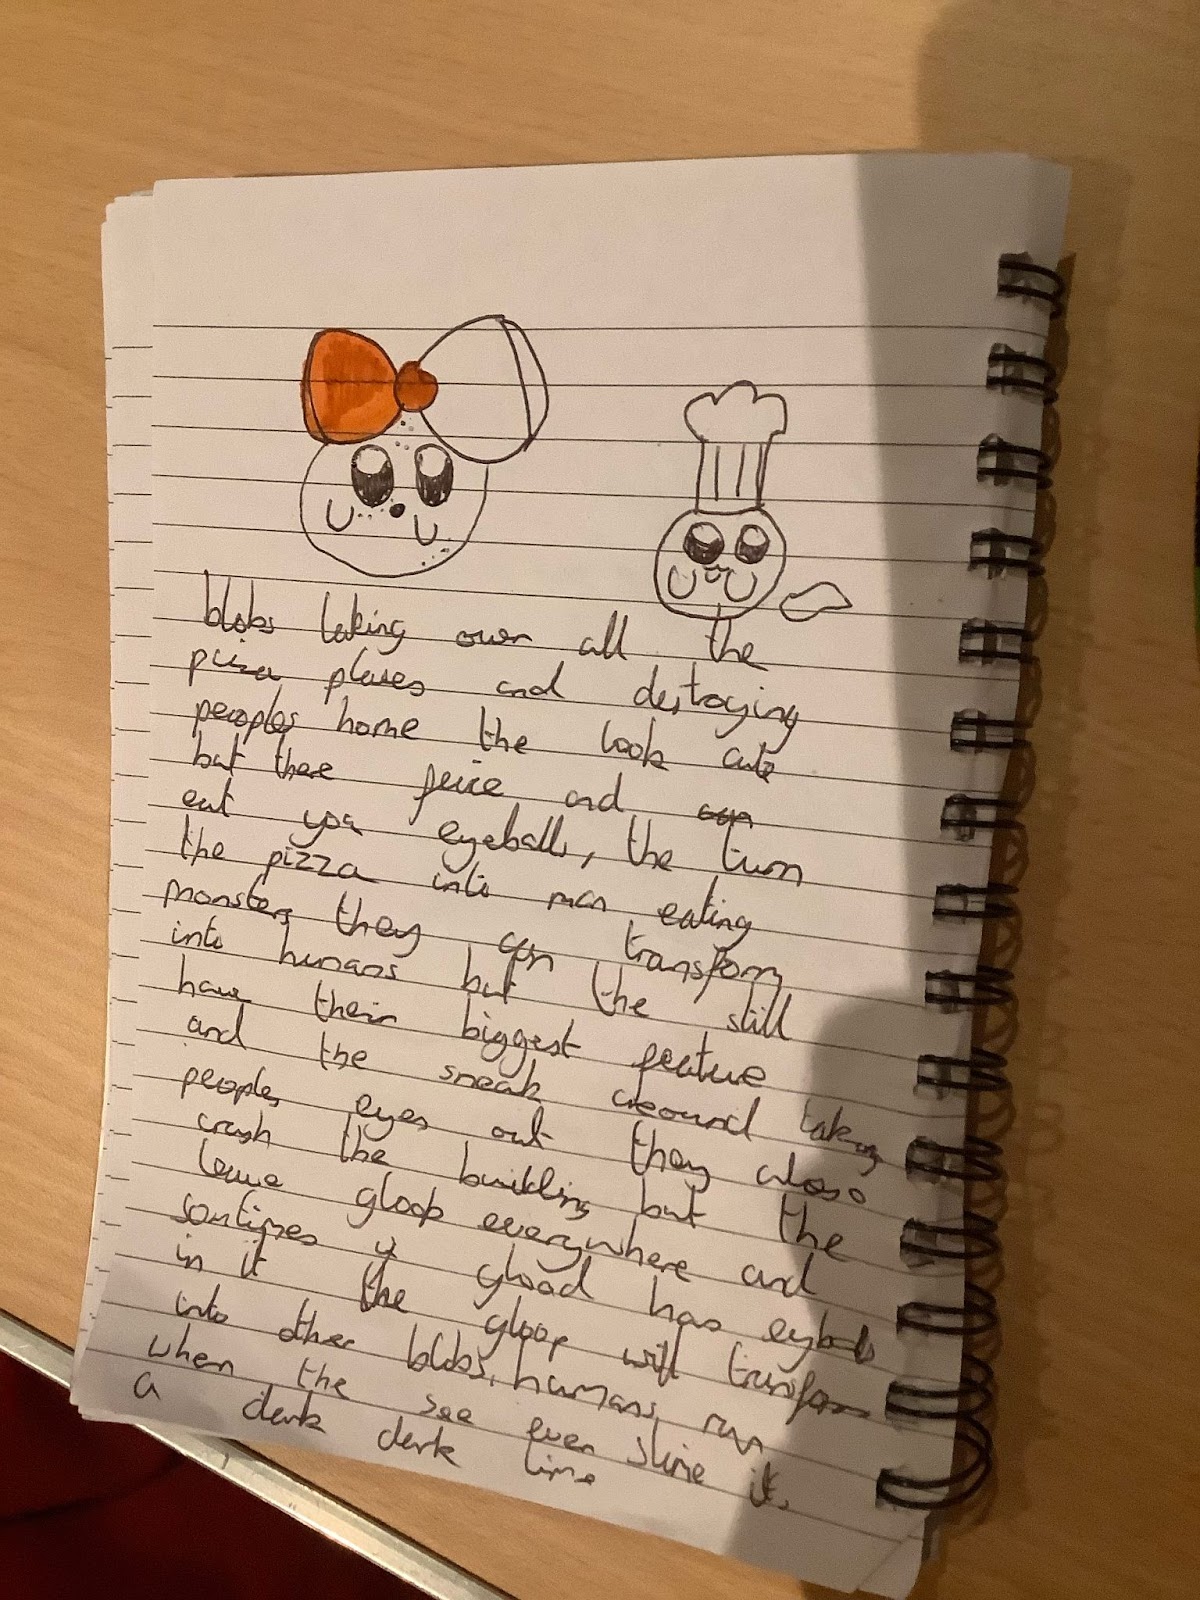 blobs taking over all the
pizza places and destroying
peoples home the look cute
but there feice and can
eat you eyeballs, the turn
the pizza into man eating
monsters they can transform
into humans but the still
have their biggest feature
and the sneak around taking
peoples eyes out they also
crash the building but the
leave gloop everywhere and
somtimes if has eyballs
in it the gloop will transform
into other blobs, humans run
when the see even slime it.
a dark dark time